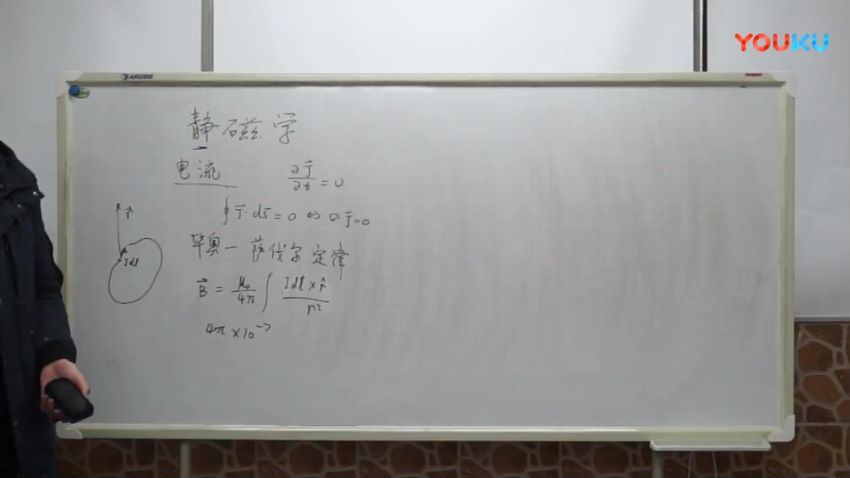 YOUKU
AUCDO
静磁学
电流 ∂J⃗/∂t = 0
∮ J⃗·ds⃗ = 0 ⇔ ∇J⃗=0
毕奥-萨伐尔定律
r⃗
Idl
B⃗ = μ₀/4π ∫ Idl⃗×r̂/r²
4π×10⁻⁷